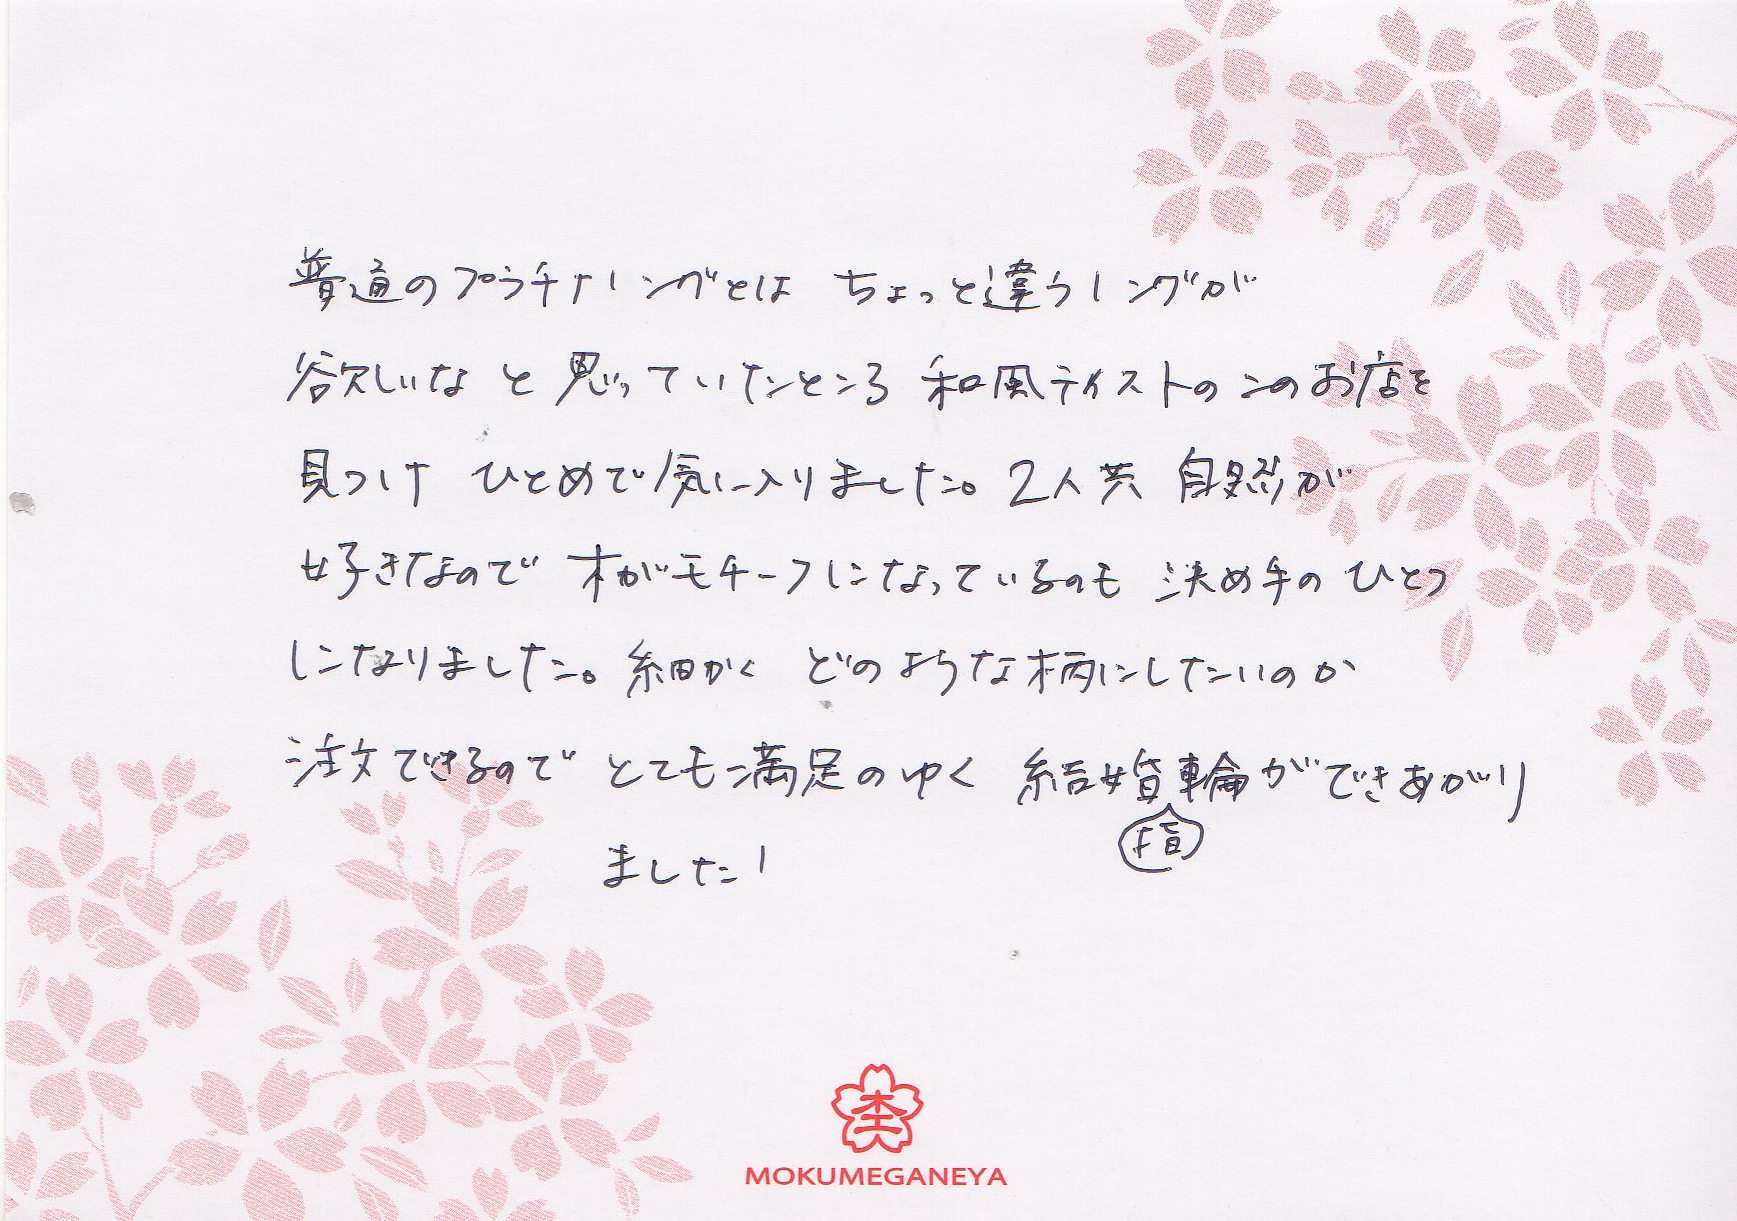 普通のプラチナリングとは ちょっと違うリングが
欲しいな と 思っていたところ 和風テイストのこのお店を
見つけ ひとめで気に入りました。2人共 自然が
好きなので 木がモチーフになっているのも 決め手の ひとつ
になりました。細かく どのような柄にしたいのか
注文できるので とても満足のゆく 結婚輪ができあがり
指
ました!
杢
MOKUMEGANEYA